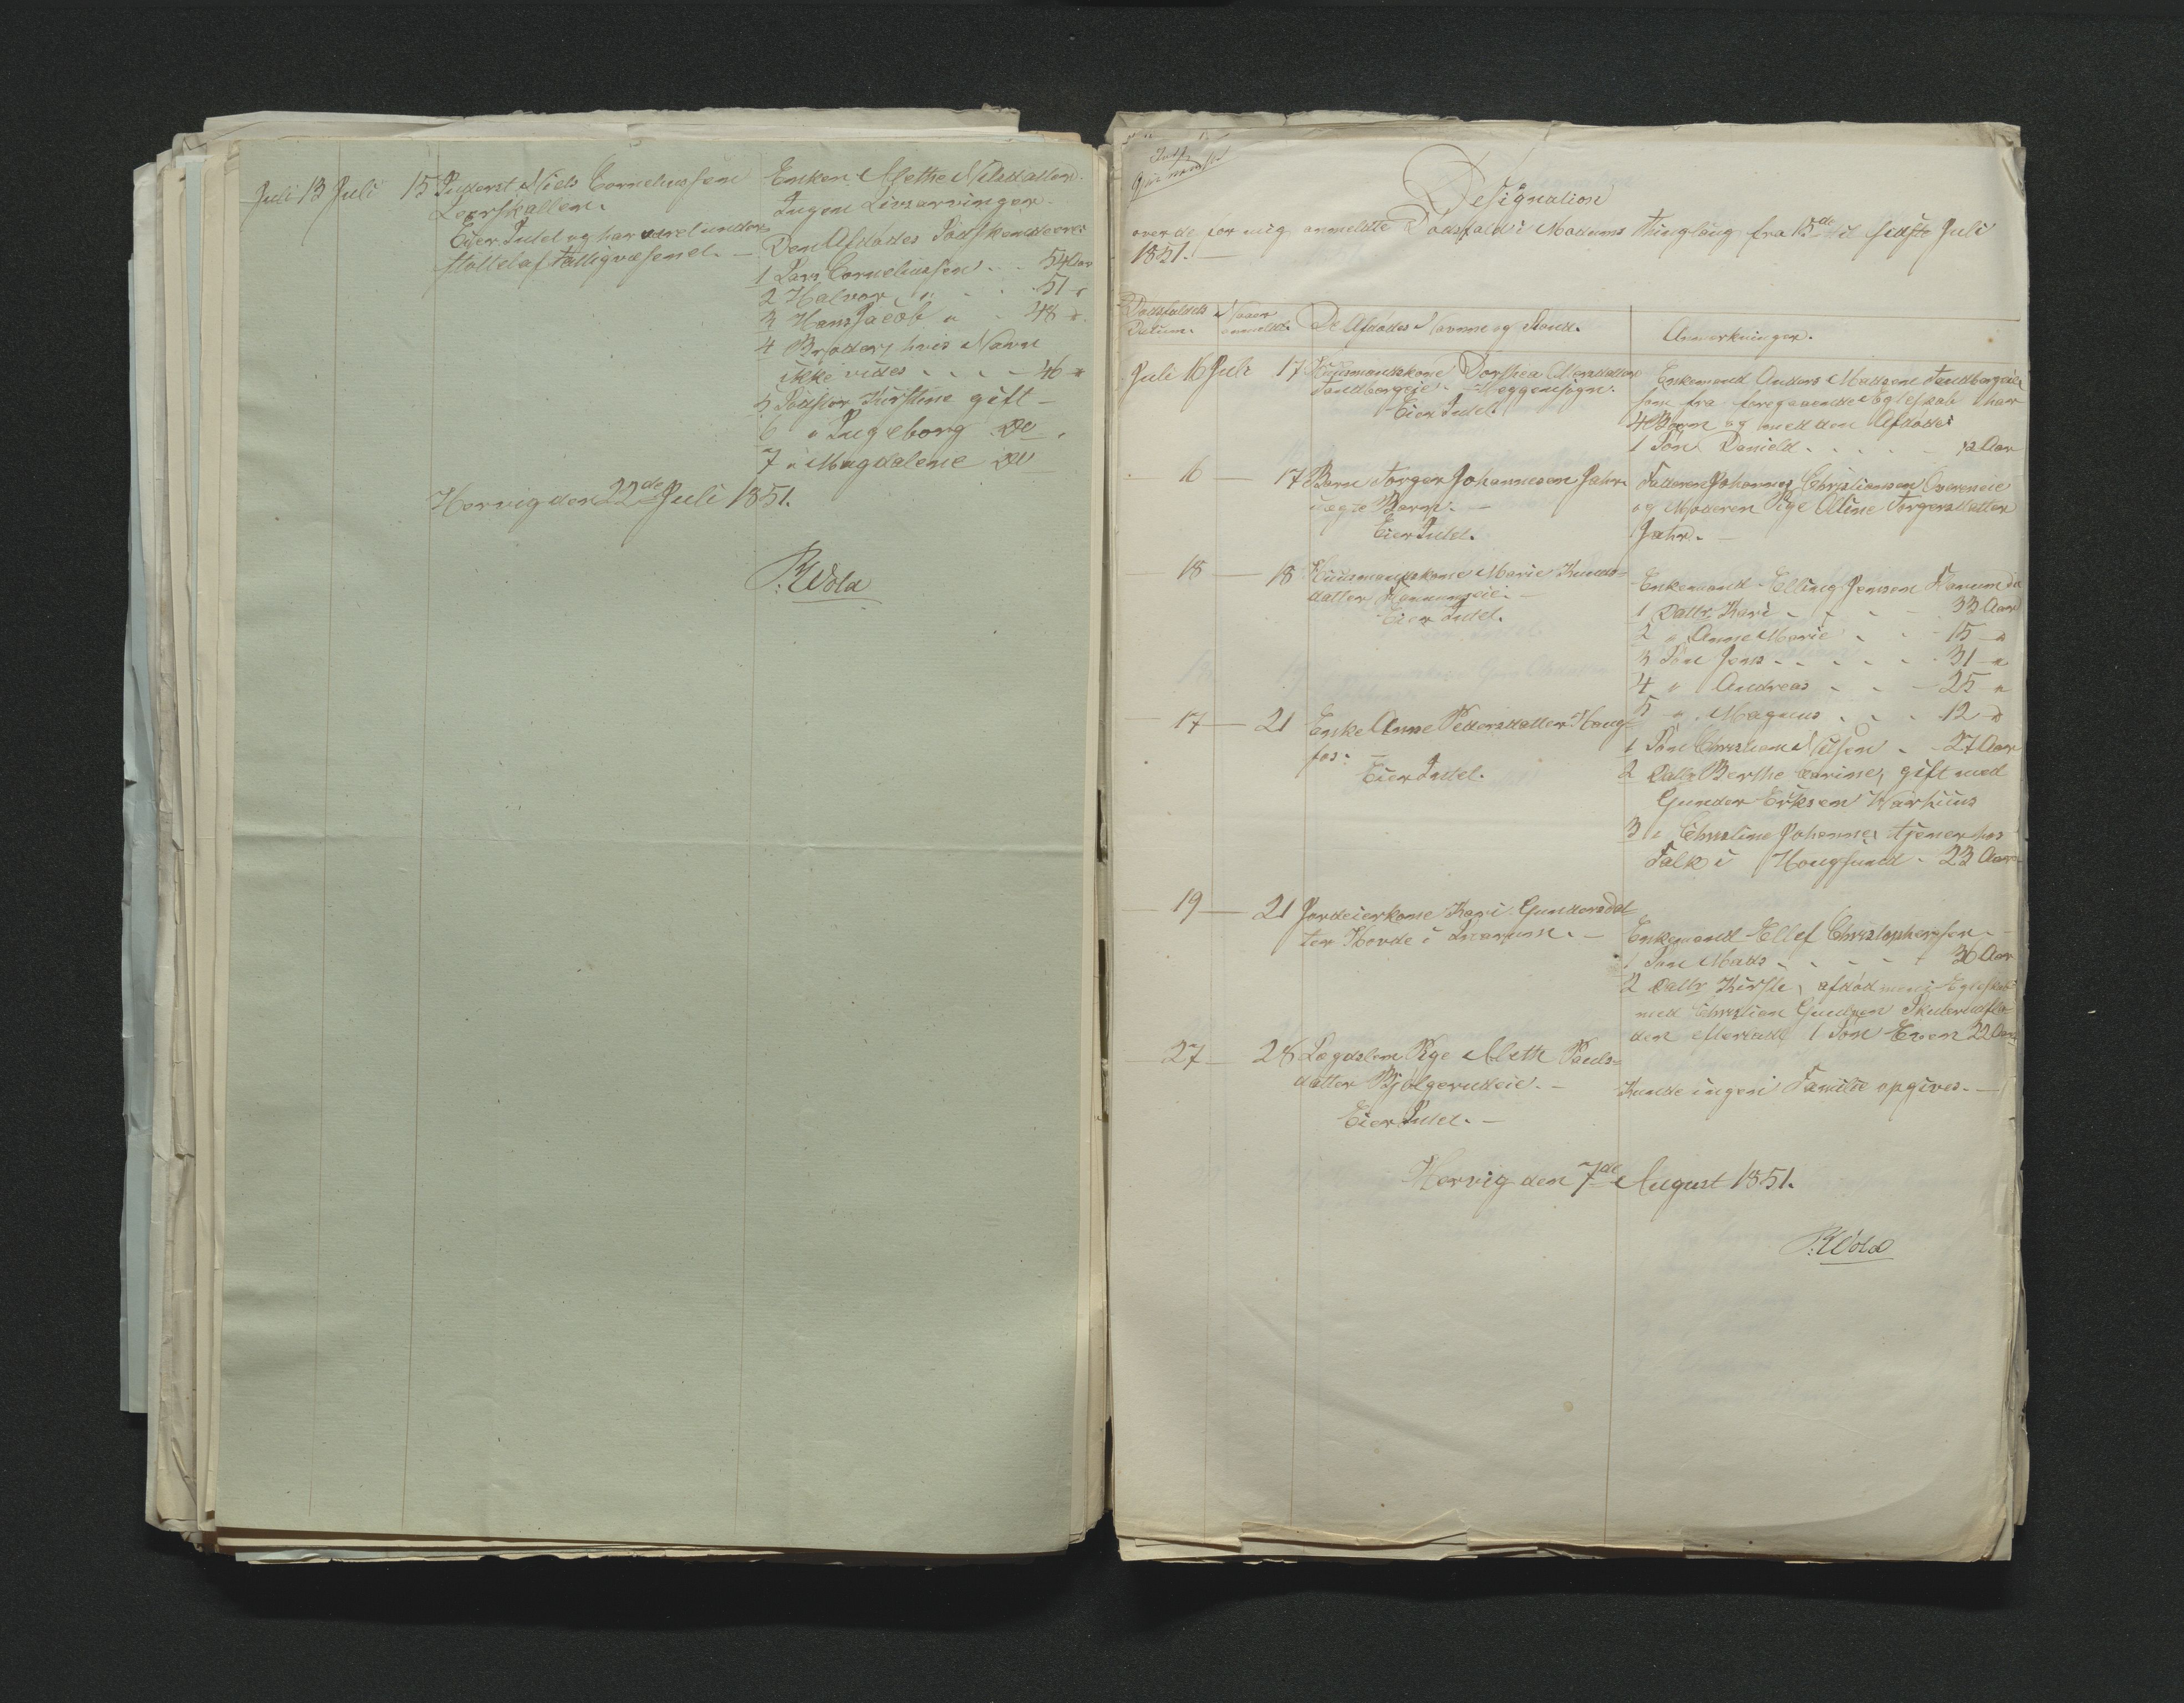 Juli 13 Juli 15 Inderst Niels Corneliussen
Leerskallen.
Eier Intet og har været under-
støttet af Fattigvæsenet. —
Enken Methe Nilsdatter.
Ingen Livsarvinger.
Den Afdødes Södskendeere:
1 Lars Corneliussen - - 54 Aar
2 Halvor " - - 51 "
3 Hans Jacob " - 48 "
4 Broder, hvis Navn
ikke vides - - - - 46 "
5 Södster Kirstine gift -
6 " Ingeborg Do
7 " Magdalene Do
Hervig den 22de Juli 1851.
P. Wold
Designation
over de for mig anmeldte Dødsfald i Modums Thinglaug fra 15de til sidste Juli
1851. —
Dödsfaldets Datum.
Naar anmeldt.
De Afdödes Navne og Stand.
Anmerkninger.
Juli 16 Juli 17 Huusmandskone Dorthea Olersdatter
Sandborgeie. Heggensogn.
Eier Intet.
Enkemand Anders Madsen Sandborgeie
som fra foregaaende Egteskab har
4 Börn og med den Afdöde:
1 Sön Danield - - - - - 12 Aar
— 16 — 17 Barn Torger Johannesen Jahr.
uægte Barn. —
Eier Intet.
Faderen Johannes Christiansen Overeneie
og Moderen Pige Oline Torgersdatter
Jahr. —
— 18 — 18 Huusmandskone Marie Knuds-
datter Hannumseie. —
Eier Intet.
Enkemand Elling Jensen Hanumeie
1 Dattr Kari - - - - 33 Aar
2 " Anne Marie - - 15 "
3 Sön Jens - - - - - 31 "
4 " Andreas - - - 25 "
5 " Magnus - - - 12 "
— 17 — 21 Enke Anne Pedersdatter Haug-
fos. —
Eier Intet.
1 Sön Christian Nilsen - 27 Aar
2 Dattr Berthe Carine, gift med
Gunder Eriksen Kårhuus
3 " Christine Johanne, tjener hos
Falk i Hougsund - 23 Aar
— 19 — 21 Jordeierkone Kari Gundersdat-
ter Horde i Snarum. —
Enkemand Ellef Christophersen -
1 Sön Mads - - - - - 36 Aar
2 Dattr Kirsti, afdöd men i Egteskab
med Christian Gudsen Skuterudflaa-
den efterladt 1 Sön Even 22 Aar
— 27 — 28 Lægdslem Pige Meth Pauls-
datter Bjölgerudeie. —
Eier Intet. —
Kunde ingen Familie opgives. —
Hervig den 7de August 1851.
P. Wold